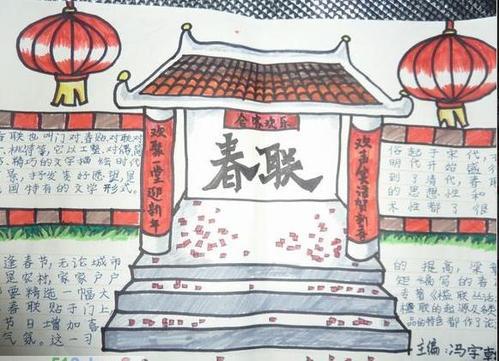 合家欢乐
欢聚一堂迎新年
春联
欢度生活贺新春
联也叫门对、春贴、对联、对
桃符等,它以工整、对偶、简
、精巧的文字描绘时代
景,抒发美好愿望,是
国特有的文学形式。
逢春节,无论城市
是农村,家家户户
要精选一幅大
春联贴于门上
节日增加喜
气氛。这一习
俗起于宋代,
明代开始盛
到了清代,春
的思想性和
术性都了很
的提高,梁
矩编写的春
专著《楹联丛话
楹联的起源及各类
品的特色都作了论
主编:冯宇